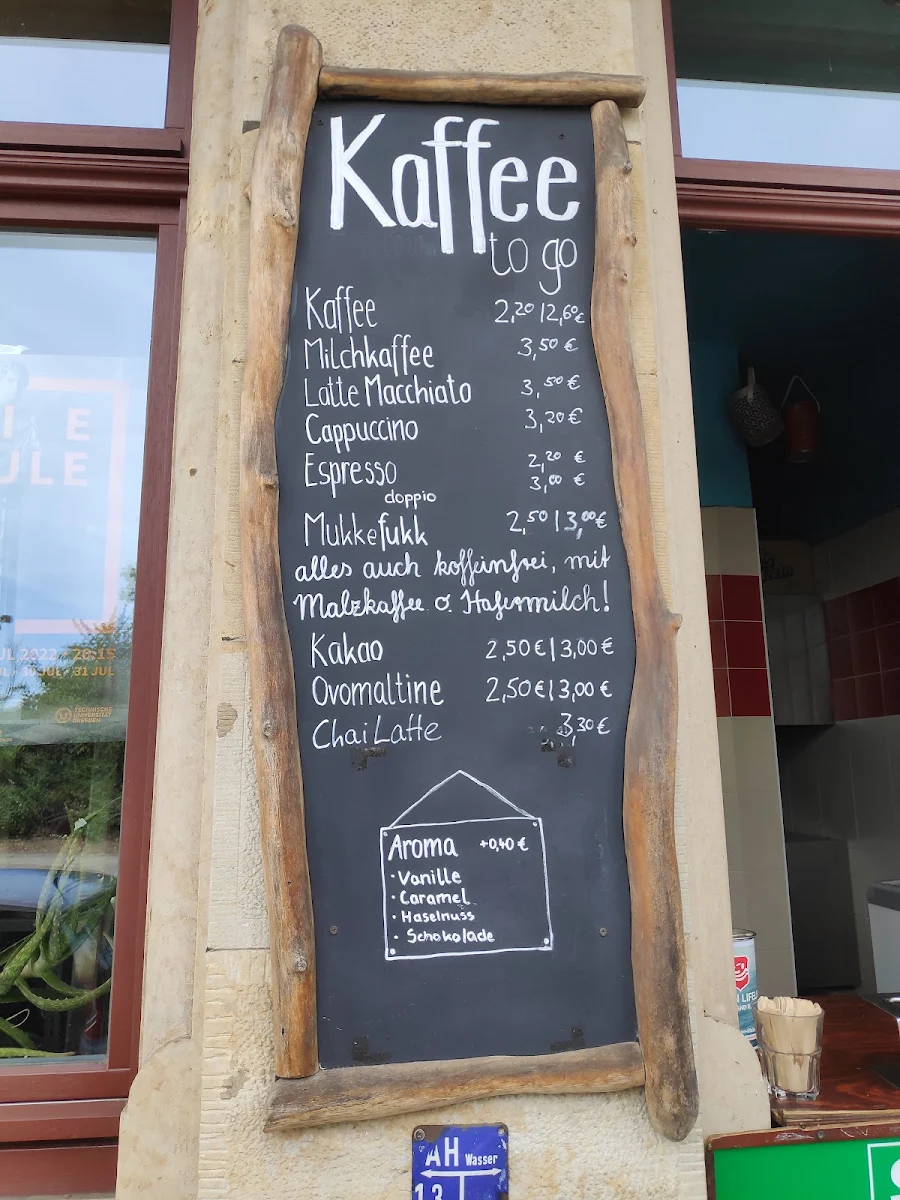 Kaffee
to go
Kaffee 2,20 | 2,60 €
Milchkaffee 3,50 €
Latte Macchiato 3,50 €
Cappuccino 3,20 €
Espresso 2,20 €
doppio 3,00 €
Mukkefukk 2,50 | 3,00 €
alles auch koffeinfrei, mit
Malzkaffee o. Hafermilch!
Kakao 2,50 € | 3,00 €
Ovomaltine 2,50 € | 3,00 €
Chai Latte 3,30 €
Aroma +0,40 €
· Vanille
· Caramel
· Haselnuss
· Schokolade
AH Wasser
13
I E
ULE
JUL 2022 - 20:15
30 JUL - 31 JUL
TECHNISCHE
UNIVERSITÄT
DRESDEN
LIFE